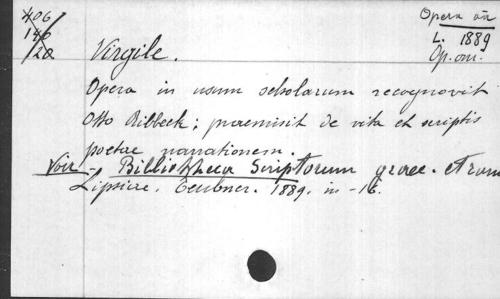 406
140
/20
Opera oā
L. 1889
Op. om.
Virgile.
Opera in usum scholarum recognovit
Otto Ribbeck; praemisit de vita et scriptis
poetae narrationem.
Voir - Bibliotheca Scriptorum graec. et rom
Lipsiae. Teubner. 1889. in-16.